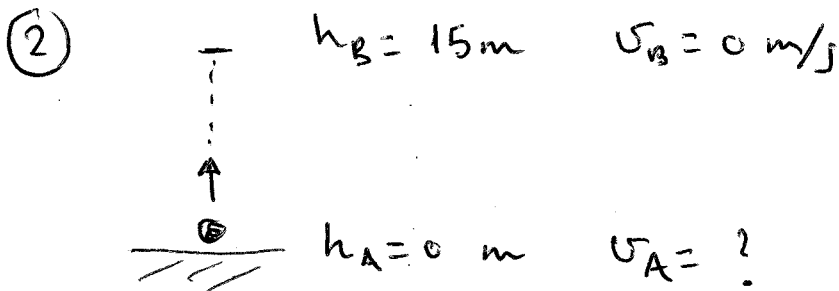 2 h_B = 15 m v_B = 0 m/s
h_A = 0 m v_A = ?